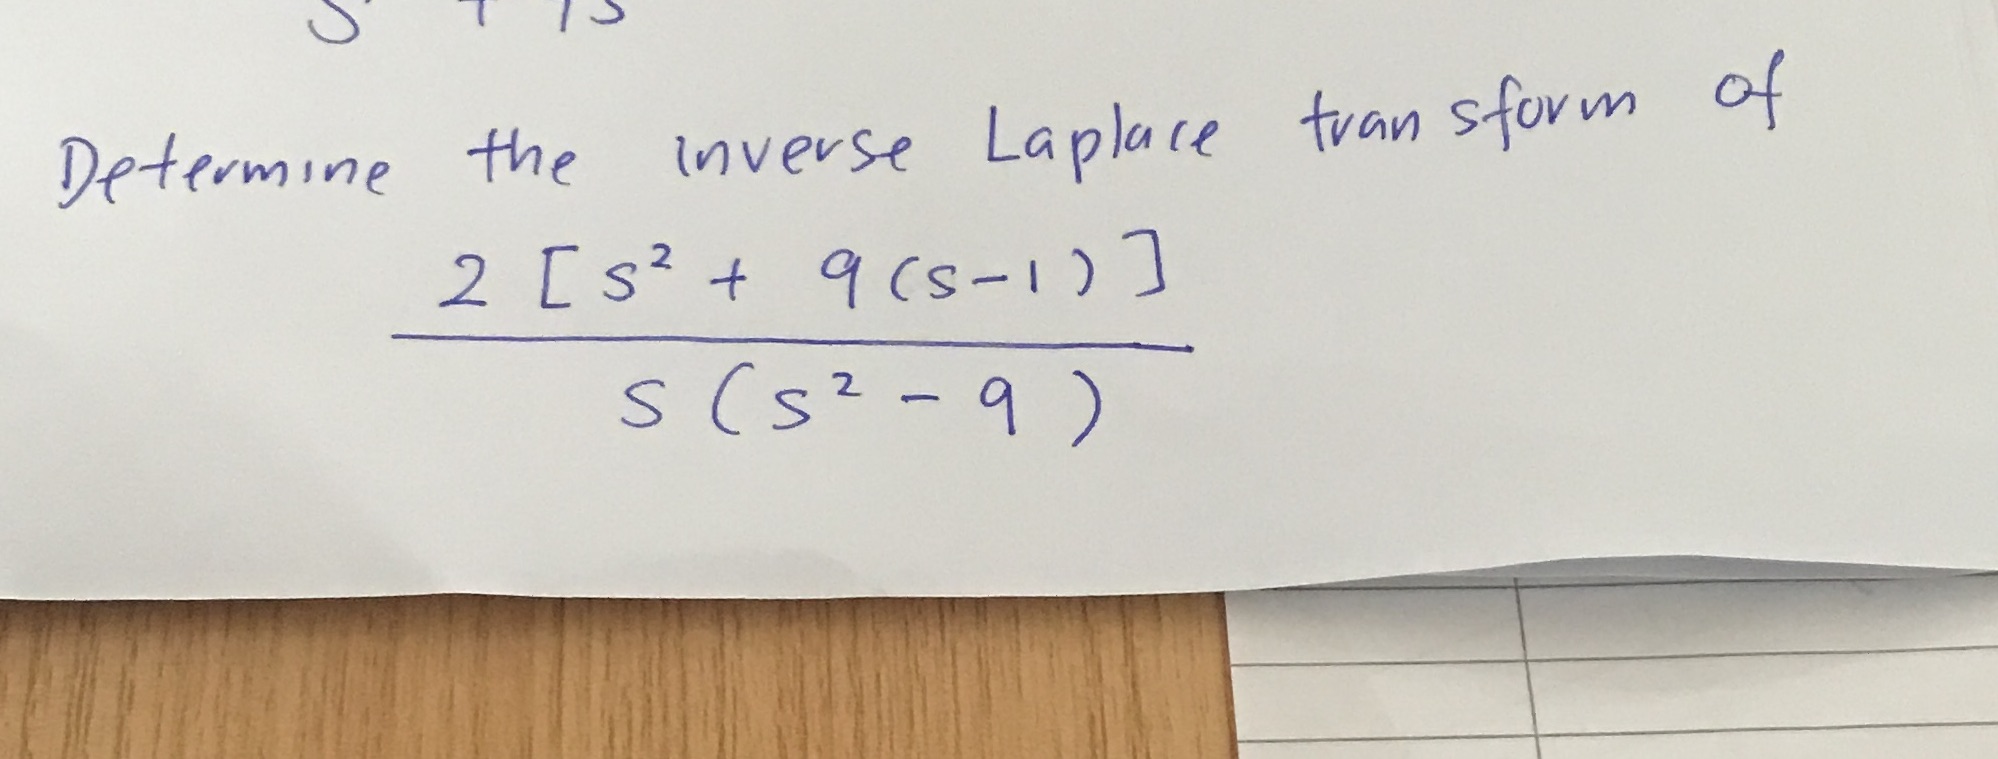 Determine the inverse Laplace transform of
2 [ s² + 9 (s-1) ]
s ( s² - 9 )